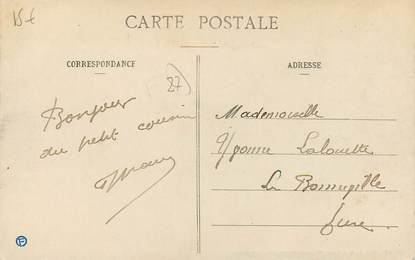 15€
CARTE POSTALE
CORRESPONDANCE
ADRESSE
(87)
Bonjour
du petit cousin
Mademoiselle
Yvonne Lalouette
La Bonneville
Eure